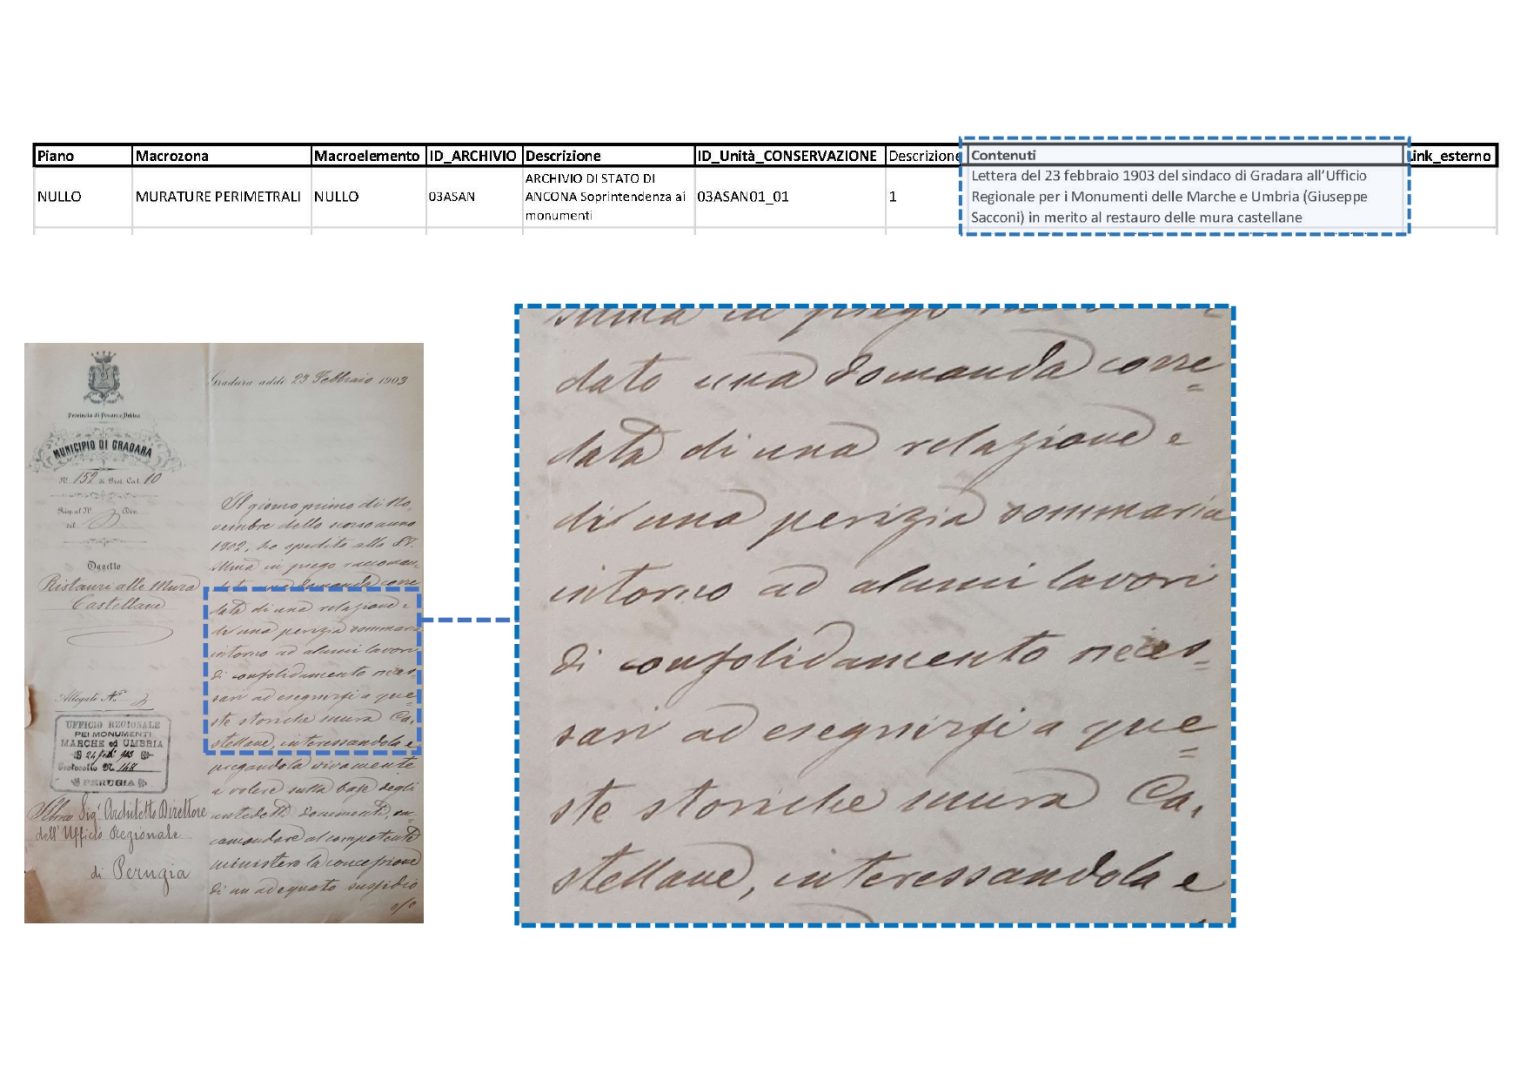 Piano Macrozona Macroelemento ID_ARCHIVIO Descrizione ID_Unità_CONSERVAZIONE Descrizione Contenuti Link_esterno
NULLO MURATURE PERIMETRALI NULLO 03ASAN ARCHIVIO DI STATO DI
ANCONA Soprintendenza ai
monumenti 03ASAN01_01 1 Lettera del 23 febbraio 1903 del sindaco di Gradara all'Ufficio
Regionale per i Monumenti delle Marche e Umbria (Giuseppe
Sacconi) in merito al restauro delle mura castellane
Gradara addì 23 Febbraio 1903
Provincia di Pesaro e Urbino
MUNICIPIO DI GRADARA
N. 152 di Prot. Cat. 10
Oggetto
Ristauri alle Mura
Castellane
Allegati N.
UFFICIO REGIONALE
PEI MONUMENTI
MARCHE ed UMBRIA
Protocollo N. 148
PERUGIA
Sig. Architetto Direttore
dell'Ufficio Regionale
di Perugia
Il giorno primo di No,
vembre dello scorso anno
1902, ho spedito alla S.V.
Illma in piego raccoman,
dato una domanda corre=
data di una relazione e
di una perizia sommaria
intorno ad alcuni lavori
di consolidamento neces=
sari ad eseguirsi a que=
ste storiche mura Ca,
stellane, interessandola e
pregandola vivamente
a volere sulla base degli
antedetti documenti,
comandare al competente
ministero la concessione
di un adeguato sussidio
dato una domanda corre=
data di una relazione e
di una perizia sommaria
intorno ad alcuni lavori
di consolidamento neces=
sari ad eseguirsi a que=
ste storiche mura Ca,
stellane, interessandola e